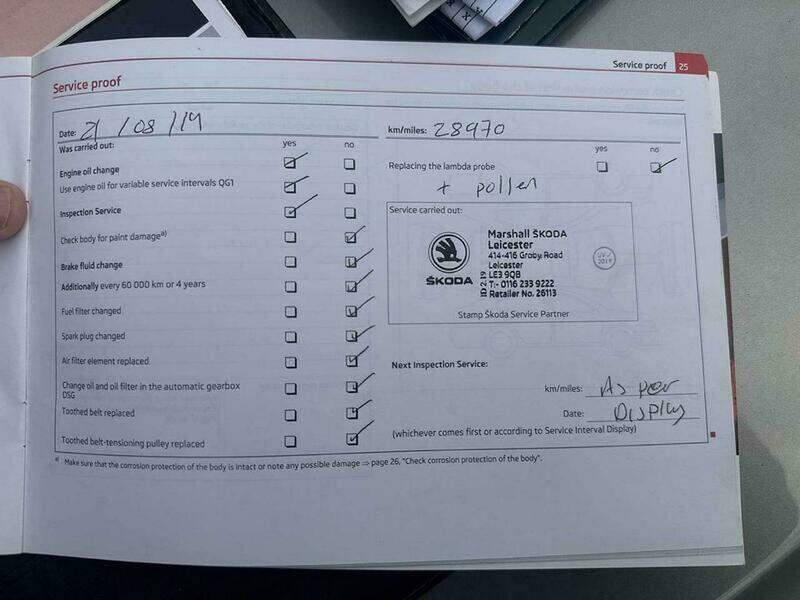 Service proof 25
Service proof
Date: 21 / 08 / 19
km/miles: 28970
Was carried out: yes no
yes no
Engine oil change
Replacing the lambda probe
Use engine oil for variable service intervals QG1
+ pollen
Inspection Service
Service carried out:
Check body for paint damage a)
Brake fluid change
Additionally every 60 000 km or 4 years
Fuel filter changed
Spark plug changed
Air filter element replaced
Change oil and oil filter in the automatic gearbox
DSG
Toothed belt replaced
Toothed belt-tensioning pulley replaced
ŠKODA
Marshall ŠKODA
Leicester
414-416 Groby Road
Leicester
LE3 9QB
T:- 0116 233 9222
Retailer No. 26113
ID 2.19
2019
Stamp Škoda Service Partner
Next Inspection Service:
km/miles: As per
Date: Display
(whichever comes first or according to Service Interval Display)
a) Make sure that the corrosion protection of the body is intact or note any possible damage ⇒ page 26, "Check corrosion protection of the body".